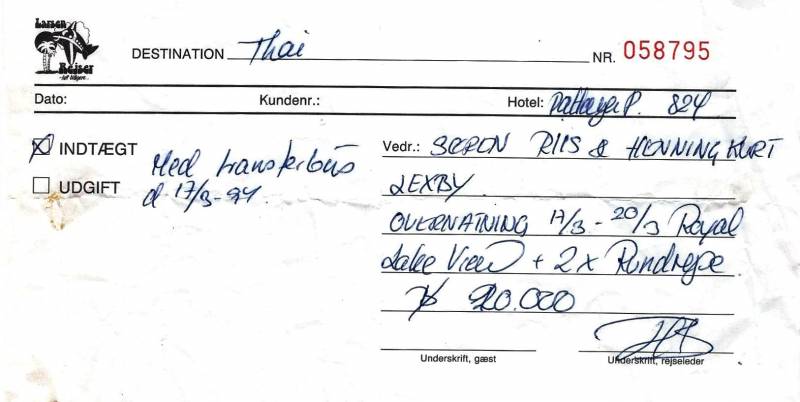 Larsen
Rejser
DESTINATION Thai NR. 058795
Dato: Kundenr.: Hotel: Pattaya P. 824
INDTÆGT
UDGIFT
Med transferbus
d 17/3-94
Vedr.: SØREN RIIS & HENNING KURT
LEXBY
OVERNATNING 17/3 - 20/3 Royal
Lake View + 2 x Rundrejse
20.000
Underskrift, gæst
Underskrift, rejseleder